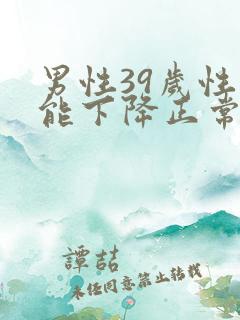 男性39歲性
能下降正常
譚喆
未经同意禁止转载